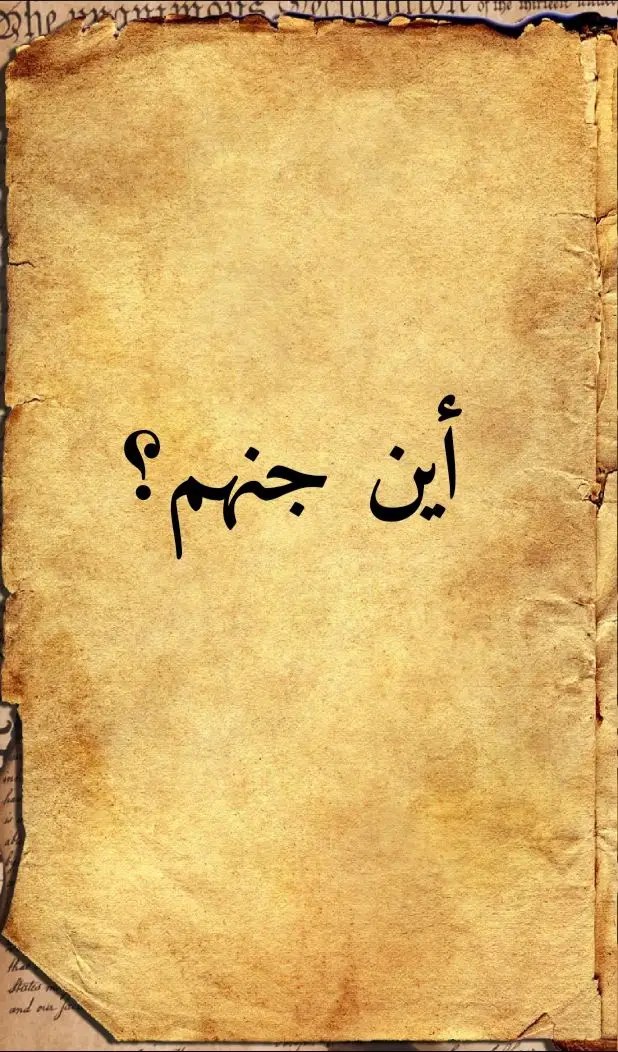 The unanimous Declaration of the thirteen united
أين جنهم؟
States
and our